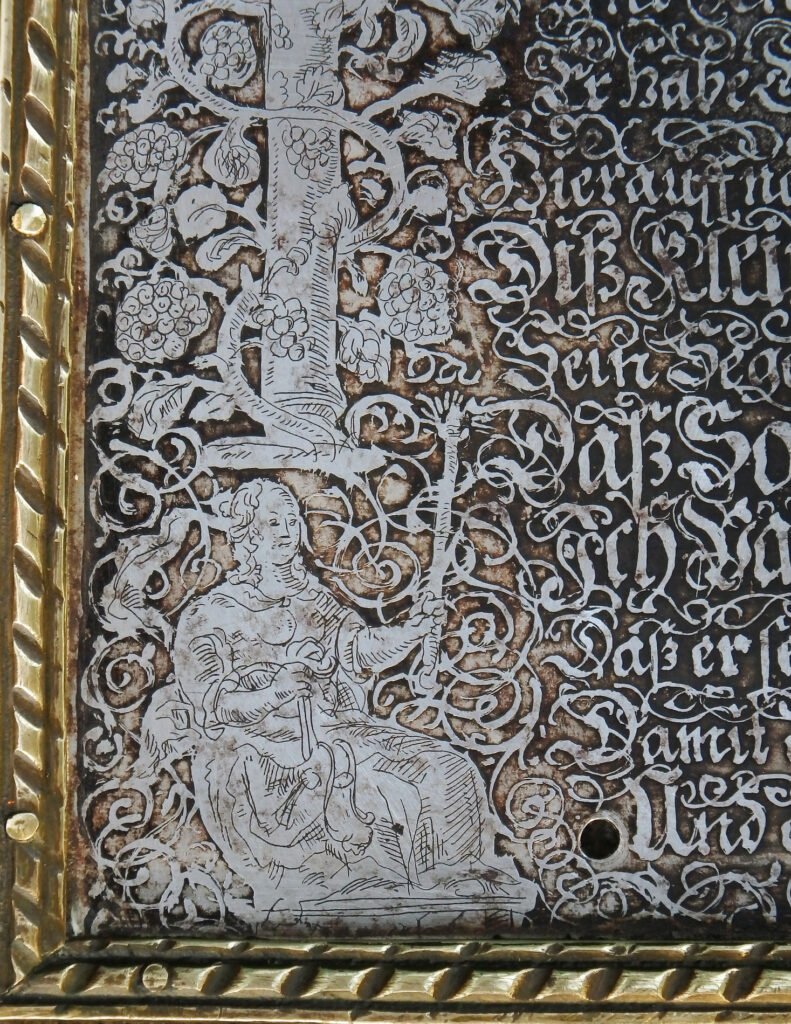 Er habe S
Hierauff
Diß Klei
Sein Sege
Daß So
Ich Va
Daß er se
Damit
Und